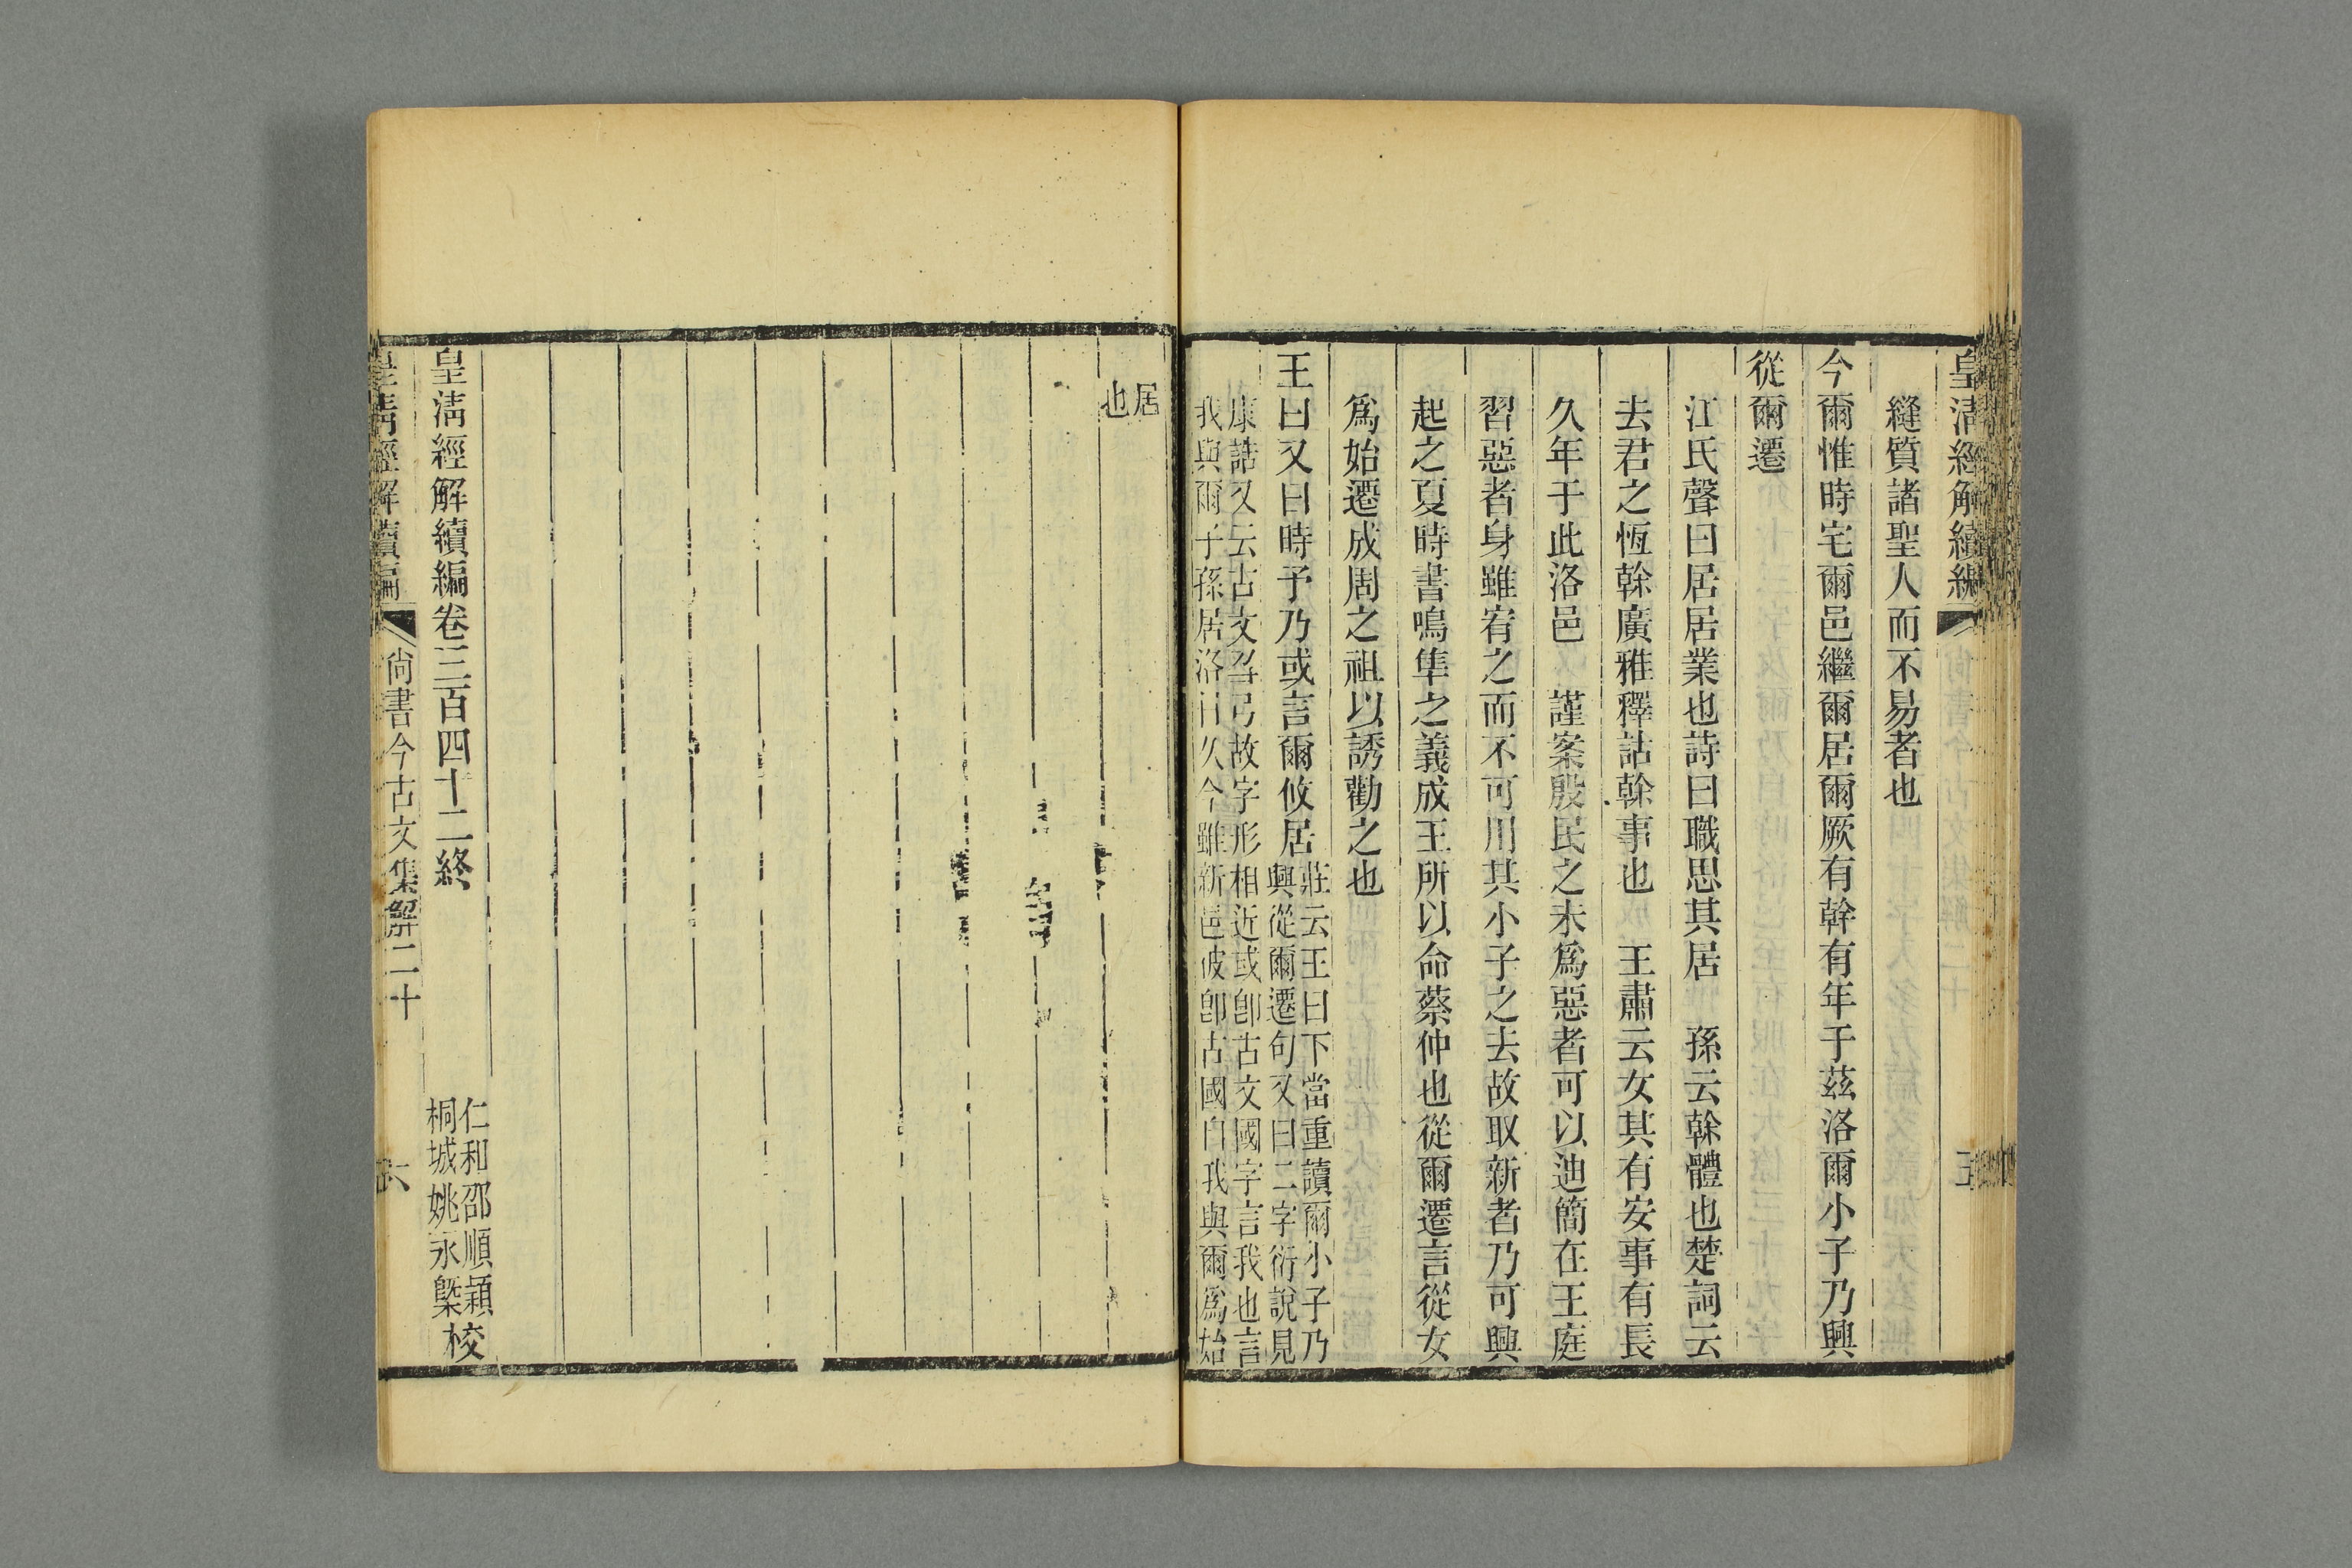 皇清經解續編
五
縫質諸聖人而不易者也
今爾惟時宅爾邑繼爾居爾厥有幹有年于茲洛爾小子乃興
從爾遷
江氏聲曰居居業也詩曰職思其居　孫云榦體也楚詞云
去君之恆榦廣雅釋詁榦事也　王肅云女其有安事有長
久年于此洛邑　謹案殷民之未爲惡者可以迪簡在王庭
習惡者身雖宥之而不可用其小子之去故取新者乃可興
起之夏時書鳴隼之義成王所以命蔡仲也從爾遷言從女
爲始遷成周之祖以誘勸之也
王曰又曰時予乃或言爾攸居
莊云王曰下當重讀爾小子乃
興從爾遷句又曰二字衍說見
康誥又云古文故字形相近或卽古文國字言我也言
我與爾子孫居洛日久今雖新邑彼卽古國自我與爾爲始
居
也
皇清經解續編卷三百四十二終
仁和邵順穎
桐城姚永㮣
校
皇清經解續編
尙書今古文集解二十
六